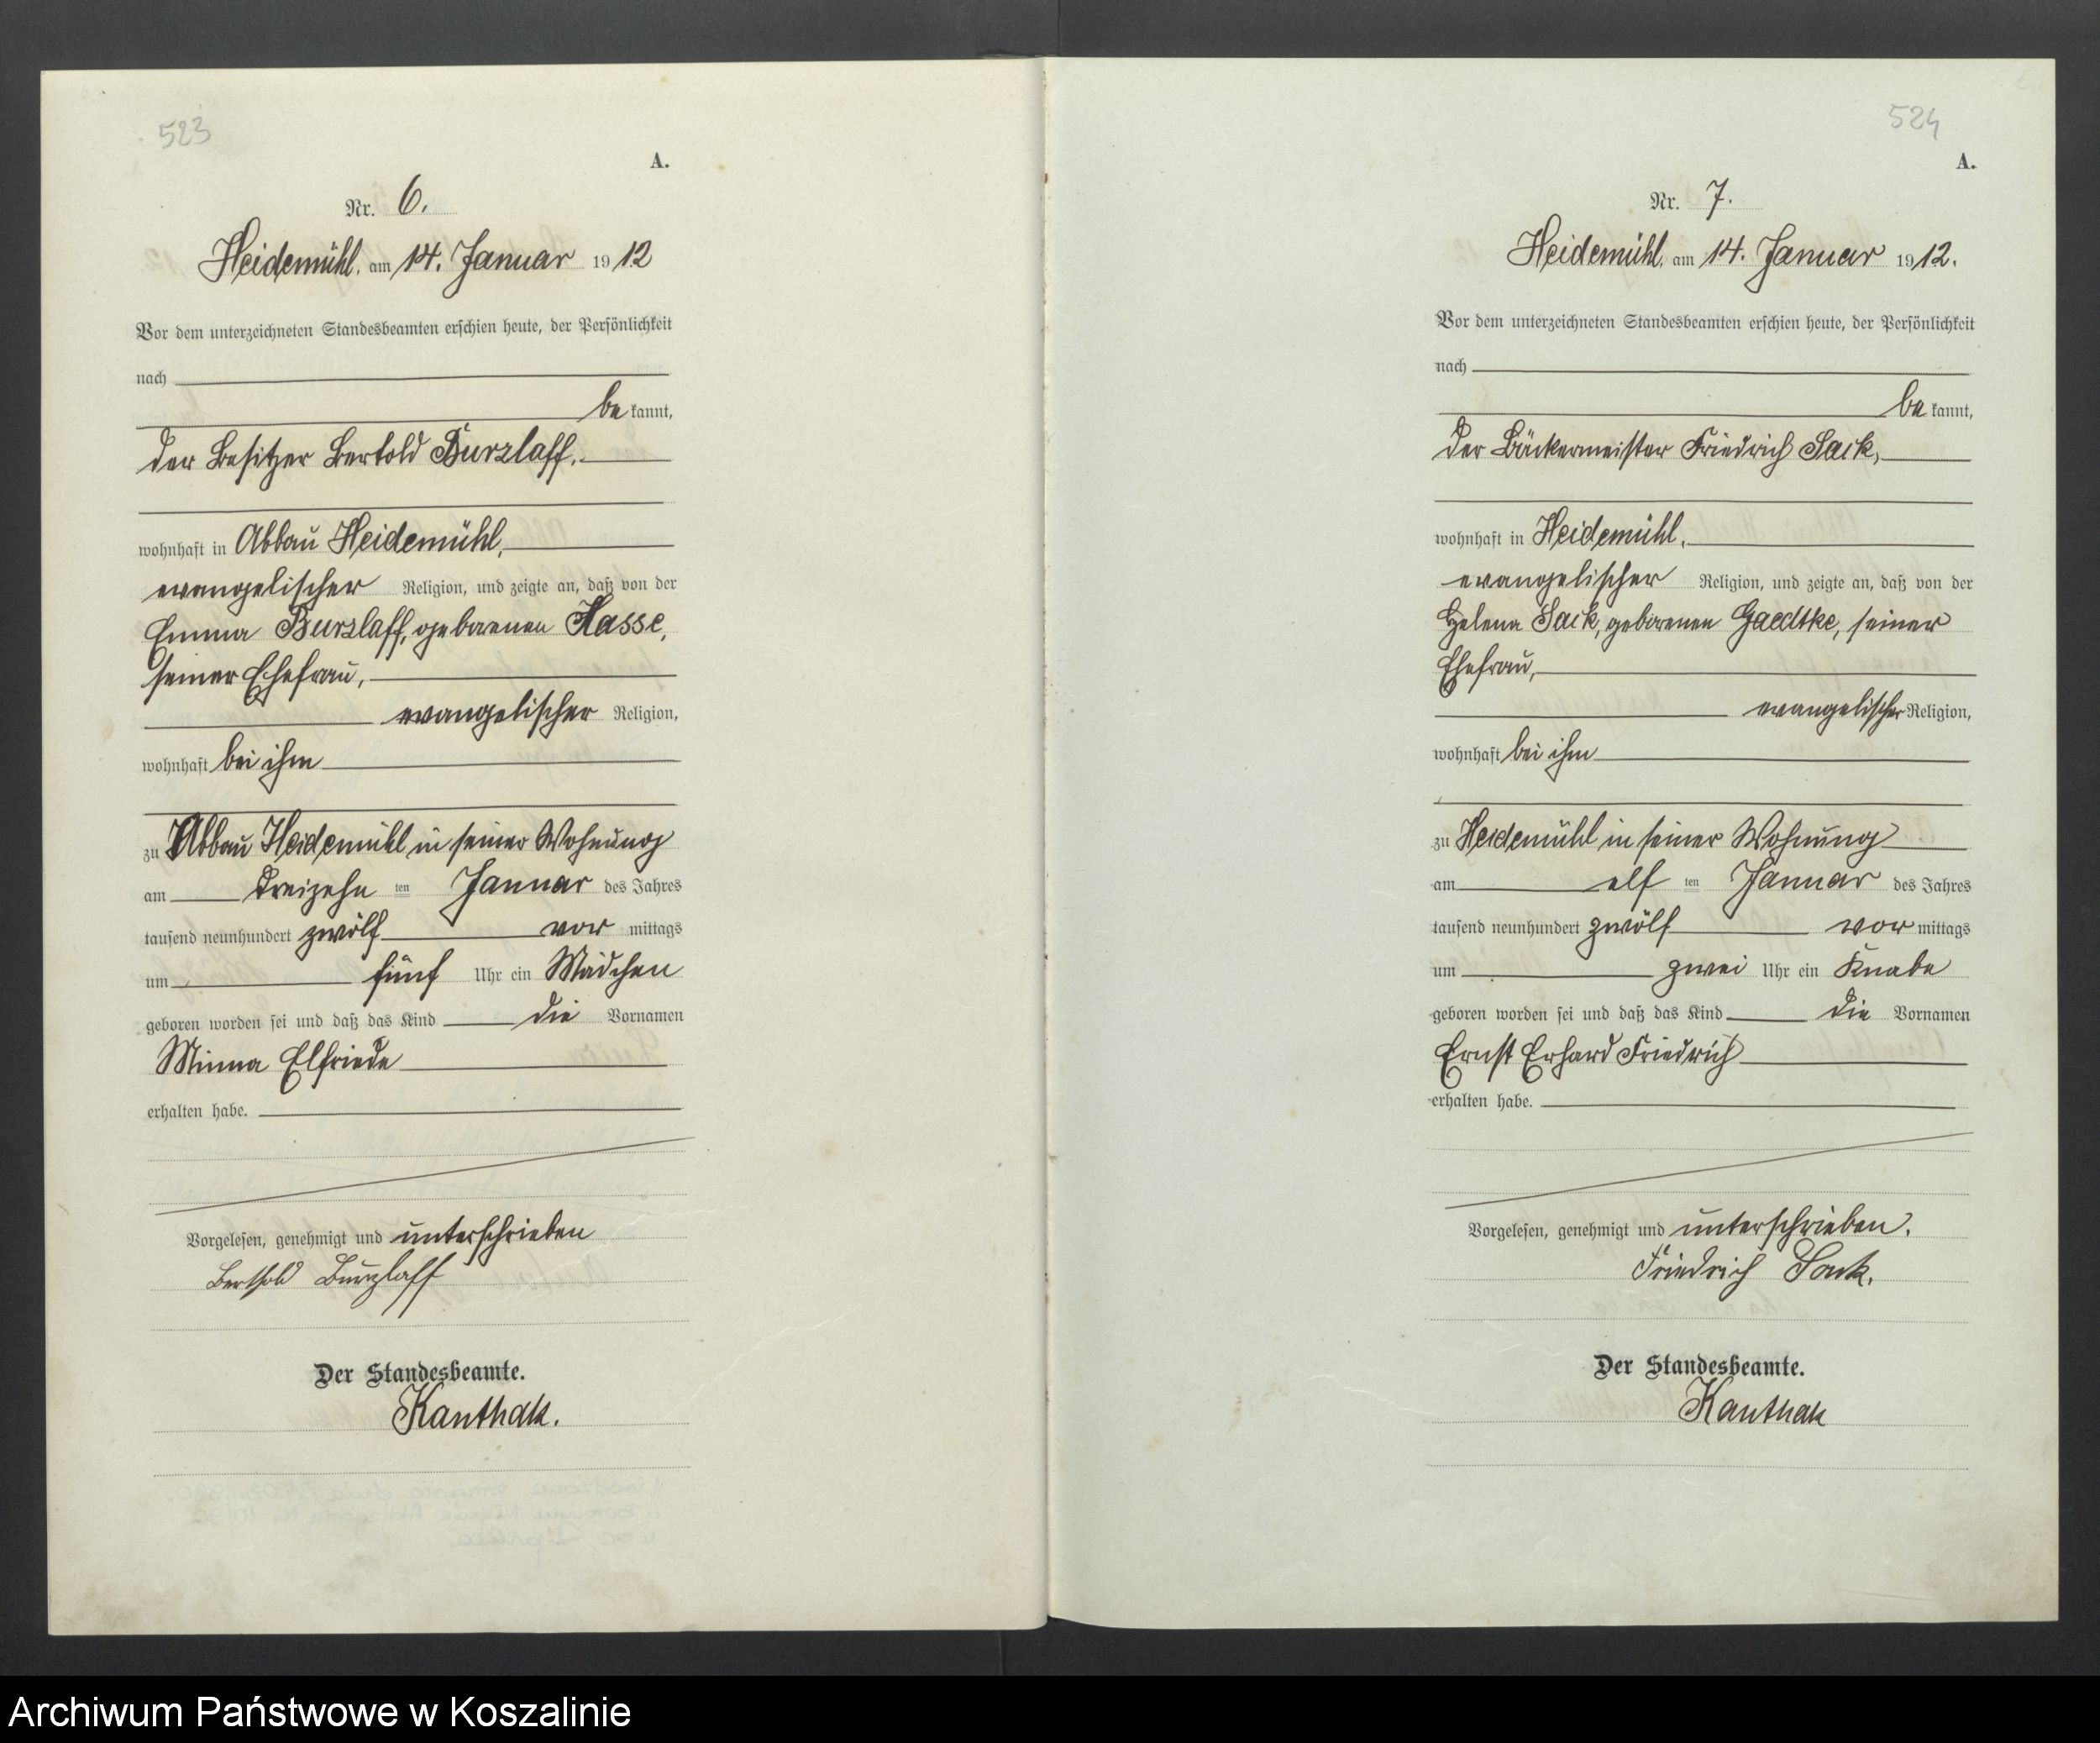 523
A.
Nr. 6.
Heidemühl, am 14. Januar 1912
Vor dem unterzeichneten Standesbeamten erschien heute, der Persönlichkeit
nach
be kannt,
der Besitzer Bertold Burzlaff,
wohnhaft in Abbau Heidemühl,
evangelischer Religion, und zeigte an, daß von der
Emma Burzlaff, geborenen Hasse,
seiner Ehefrau,
evangelischer Religion,
wohnhaft bei ihm
zu Abbau Heidemühl in seiner Wohnung
am dreizehn ten Januar des Jahres
tausend neunhundert zwölf vor mittags
um fünf Uhr ein Mädchen
geboren worden sei und daß das Kind die Vornamen
Minna Elfriede
erhalten habe.
Vorgelesen, genehmigt und unterschrieben
Berthold Burzlaff
Der Standesbeamte.
Kanthak.
524
A.
Nr. 7.
Heidemühl, am 14. Januar 1912.
Vor dem unterzeichneten Standesbeamten erschien heute, der Persönlichkeit
nach
be kannt,
der Bäckermeister Friedrich Sack,
wohnhaft in Heidemühl,
evangelischer Religion, und zeigte an, daß von der
Helena Sack, geborenen Gaedtke, seiner
Ehefrau,
evangelischer Religion,
wohnhaft bei ihm
zu Heidemühl in seiner Wohnung
am elf ten Januar des Jahres
tausend neunhundert zwölf vor mittags
um zwei Uhr ein Knabe
geboren worden sei und daß das Kind die Vornamen
Ernst Erhard Friedrich
erhalten habe.
Vorgelesen, genehmigt und unterschrieben.
Friedrich Sack.
Der Standesbeamte.
Kanthak
Archiwum Państwowe w Koszalinie